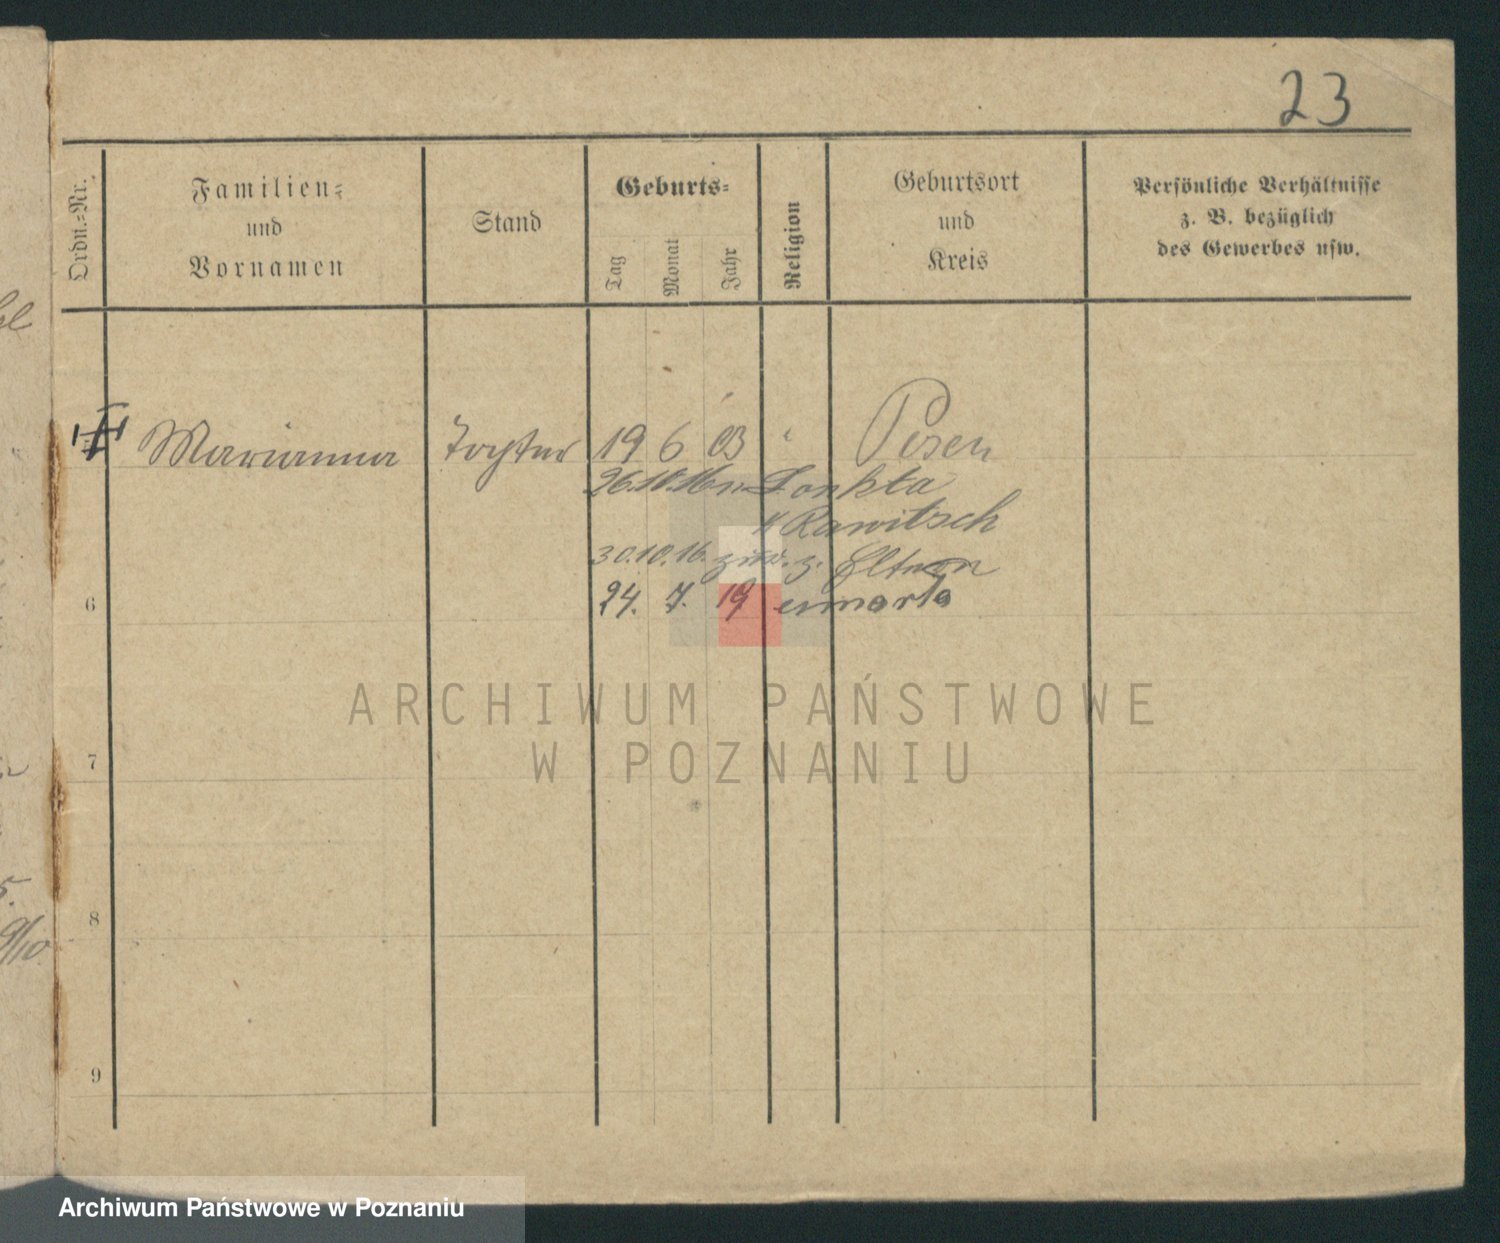 23
Ordn.-Nr.
Familien-
und
Vornamen
Stand
Geburts-
Tag
Monat
Jahr
Religion
Geburtsort
und
Kreis
Persönliche Verhältnisse
z. B. bezüglich
des Gewerbes usw.
Marianna Tochter 19 6 03 " Posen
26.10.16 n.
Rawitsch
30.10.16. zur. z. Eltern
24. 7. 19 umarła
6
7
8
9
9/10
ARCHIWUM PAŃSTWOWE
W POZNANIU
Archiwum Państwowe w Poznaniu